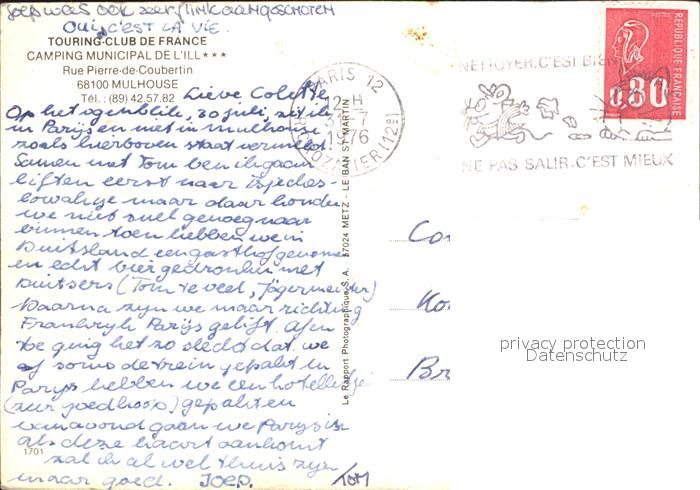 Joep was ook zeer flink aangeschoten
Oui, c'est la vie.
TOURING-CLUB DE FRANCE
CAMPING MUNICIPAL DE L'ILL ★★★
Rue Pierre-de-Coubertin
68100 MULHOUSE
Tél.: (89) 42.57.82
Lieve Colette
Op het ogenblik, 30 juli, zit ik
in Parijs en niet in mulhouse
zoals hierboven staat vermeld.
Samen met Tom ben ik gaan
liften eerst naar Tsjechos-
lowakije maar daar konden
we niet snel genoeg naar
binnen toen hebben we in
Duitsland een gasthof genomen
en echt bier gedronken met
Duitsers (Tom te veel, Jägermeister)
Daarna zijn we maar richting
Frankrijk Parijs gelift. Af en
toe ging het zo slecht dat we
soms de trein gepakt. In
Parijs hebben we een hotelletje
(zeer goedkoop) gepakt en
vanavond gaan we Parijs in
als deze kaart aankomt
zal ik al wel thuis zijn
maar goed. Joep. Tom
1701
Le Rapport Photographique S. A. 57024 METZ - LE BAN ST MARTIN
PARIS 12
12 H
-7
1976
(12e)
NETTOYER, C'EST BIEN
NE PAS SALIR, C'EST MIEUX
POSTES
RÉPUBLIQUE FRANÇAISE
0,80
Co
Ko
Br
privacy protection
Datenschutz